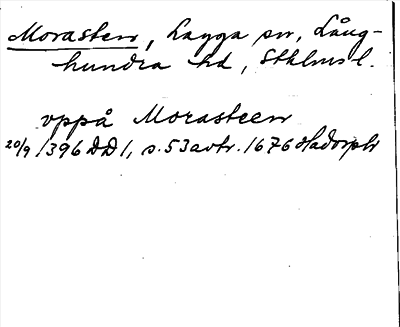 Morasten, Lagga sn, Lång-
hundra hd, Sthlms l.
vppå Morasteen
20/9 1396 DD 1, s. 53 avtr. 1676 Hadorph